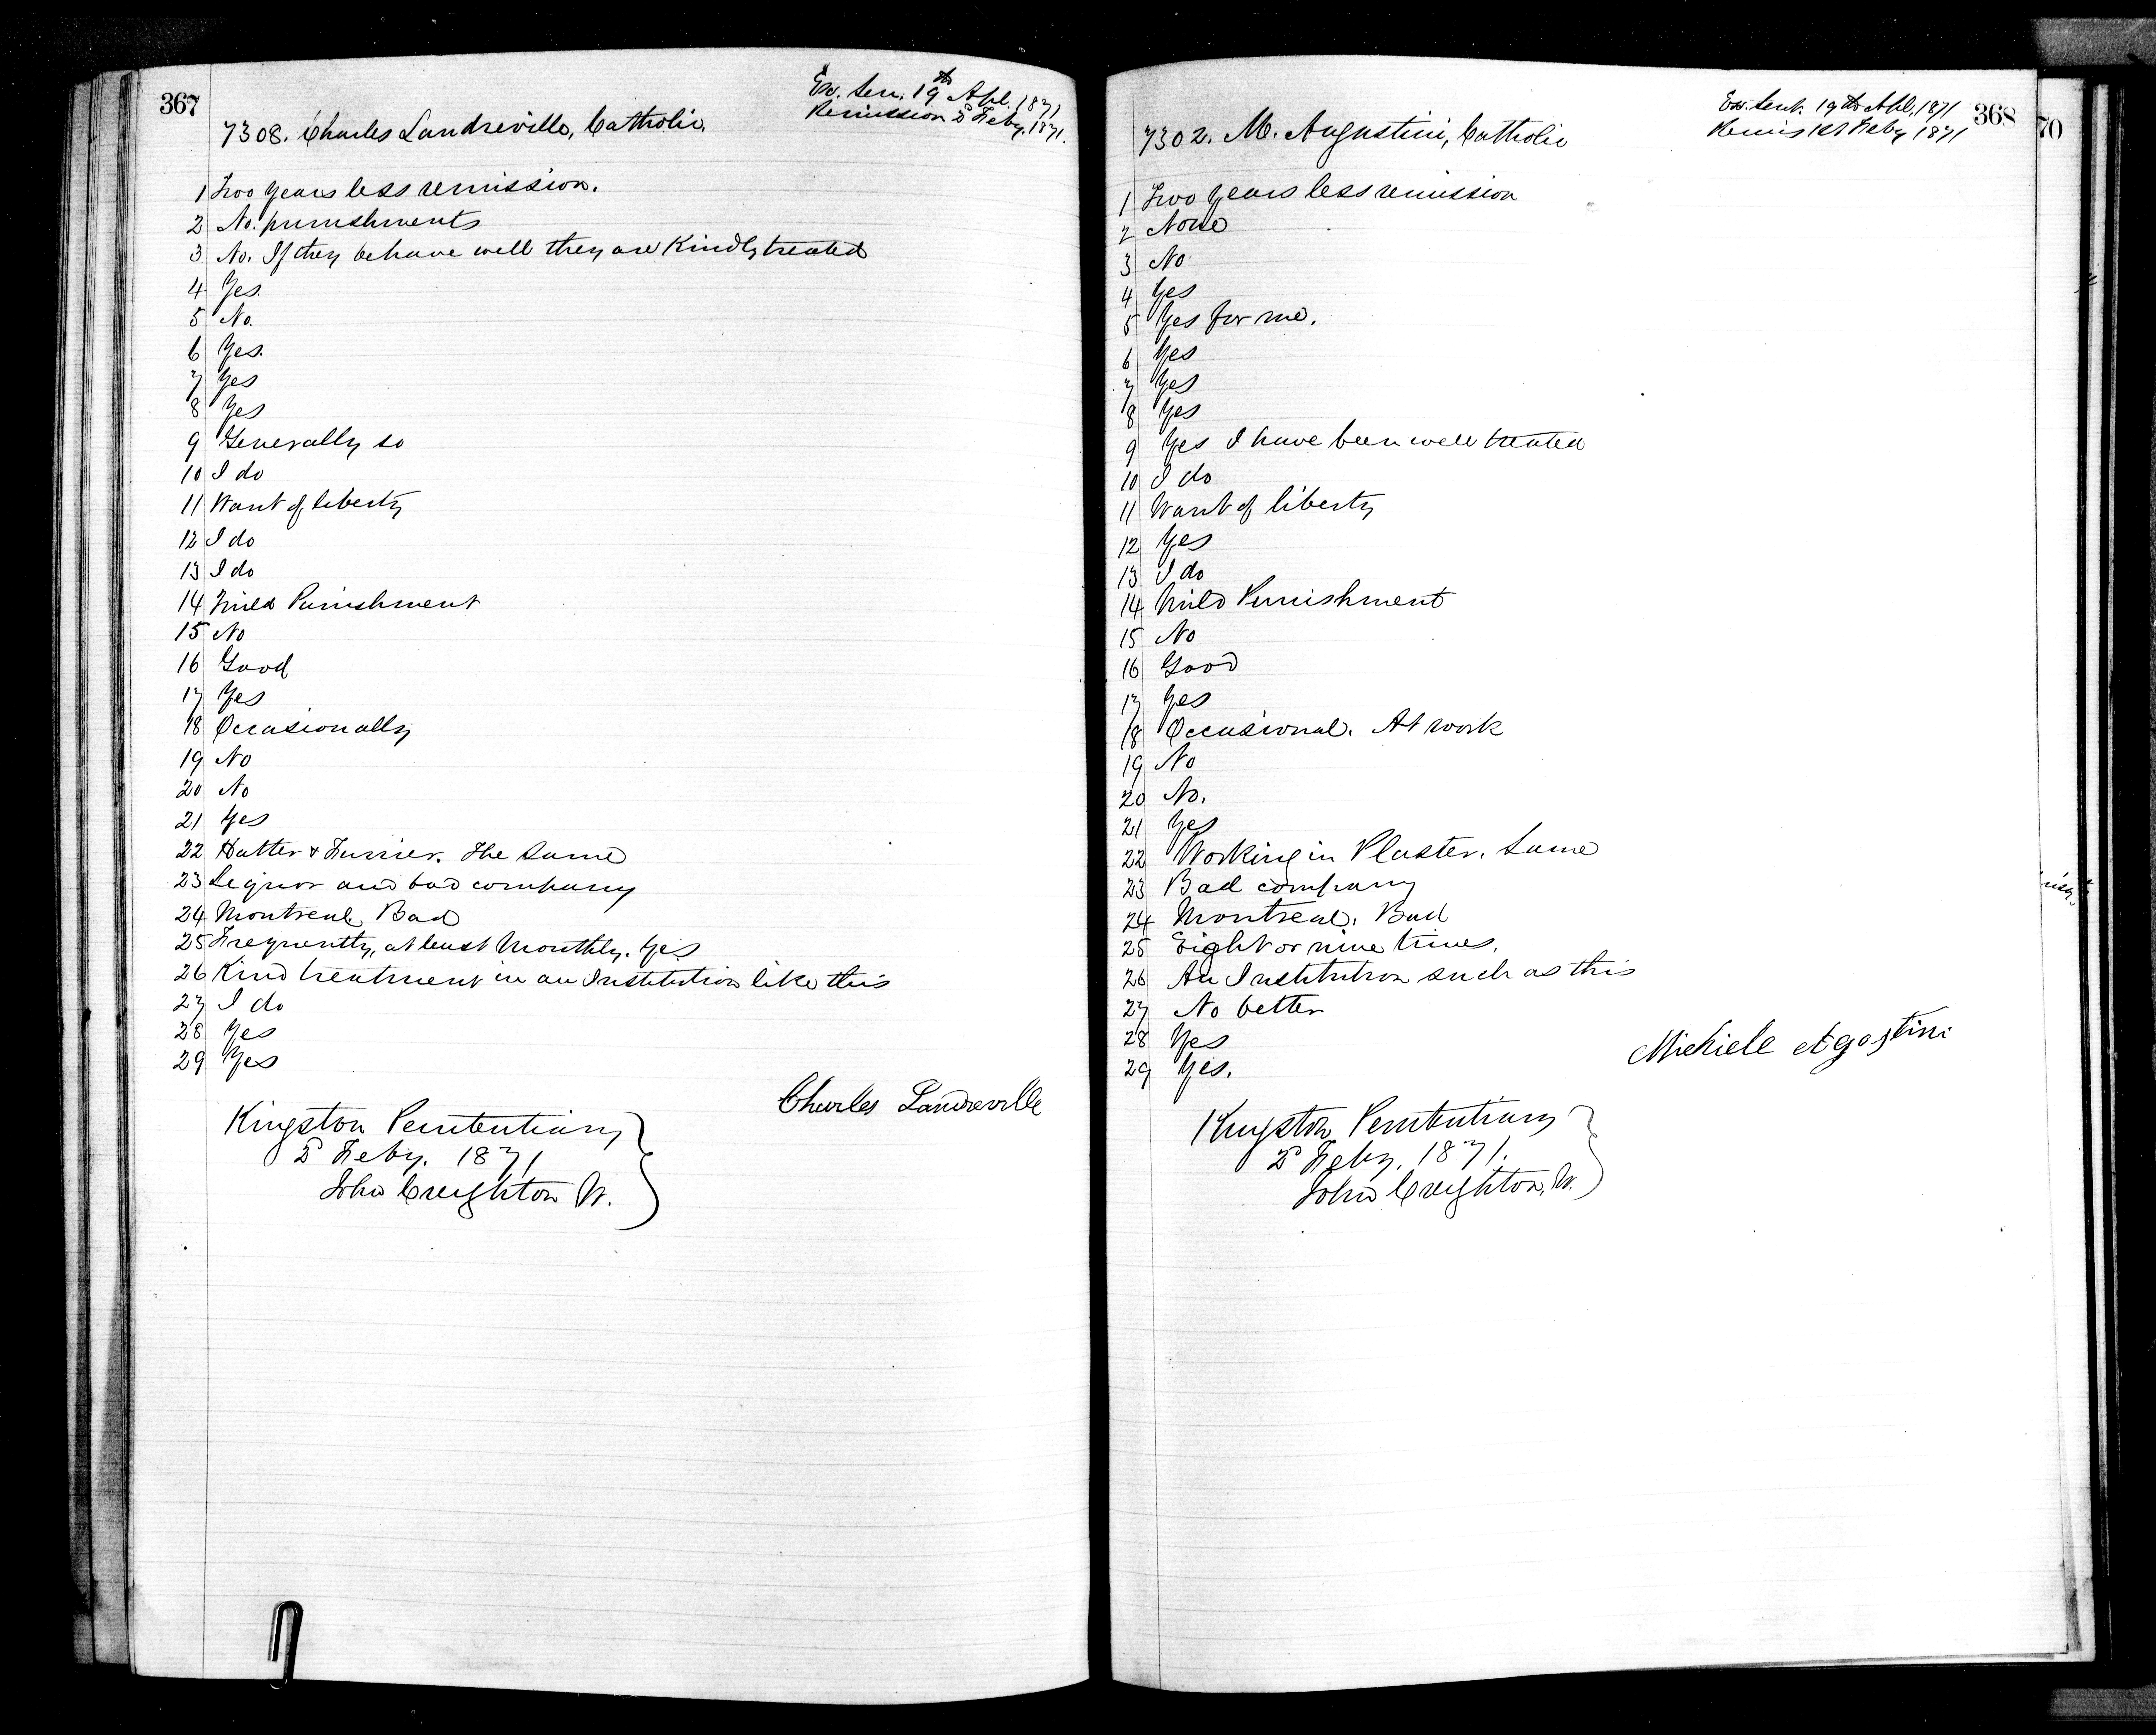 367
Ex. Sen. 19th Apl. 1871
Remission 2d Feby, 1871.
7308. Charles Landreville, Catholic.
1 Two years less remission.
2 No. punishments
3 No. If they behave well they are Kindly treated
4 Yes.
5 No.
6 Yes.
7 Yes
8 Yes
9 Generally so
10 I do
11 Want of liberty
12 I do
13 I do
14 Mild Punishment
15 No
16 Good
17 Yes
18 Occasionally
19 No
20 No
21 Yes
22 Hatter & Furrier. The Same
23 Liquor and bad company
24 Montreal, Bad
25 Frequently, at least Monthly. Yes
26 Kind treatment in an Institution like this
27 I do
28 Yes
29 Yes
Charles Landreville
Kingston Penitentiary
2d Feby. 1871
John Creighton W.
368
Ex. Sent. 19th Apl. 1871
Remis 1st Feby 1871
7302. M. Augustini, Catholic
1 Two Years less remission
2 None
3 No
4 Yes
5 Yes for me.
6 Yes
7 Yes
8 Yes
9 Yes I have been well treated
10 I do
11 Want of liberty
12 Yes
13 I do
14 Mild Punishment
15 No
16 Good
17 Yes
18 Occasional. At work
19 No
20 No.
21 Yes
22 Working in Plaster. Same
23 Bad company
24 Montreal. Bad
25 Eight or nine times.
26 An Institution such as this
27 No better
28 Yes
29 Yes.
Michiele Agostini
Kingston Penitentiary
2d Feby. 1871.
John Creighton, W.
70